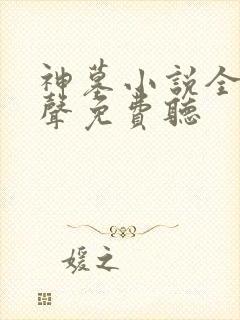 神墓小說全
聲免費聽
媛之